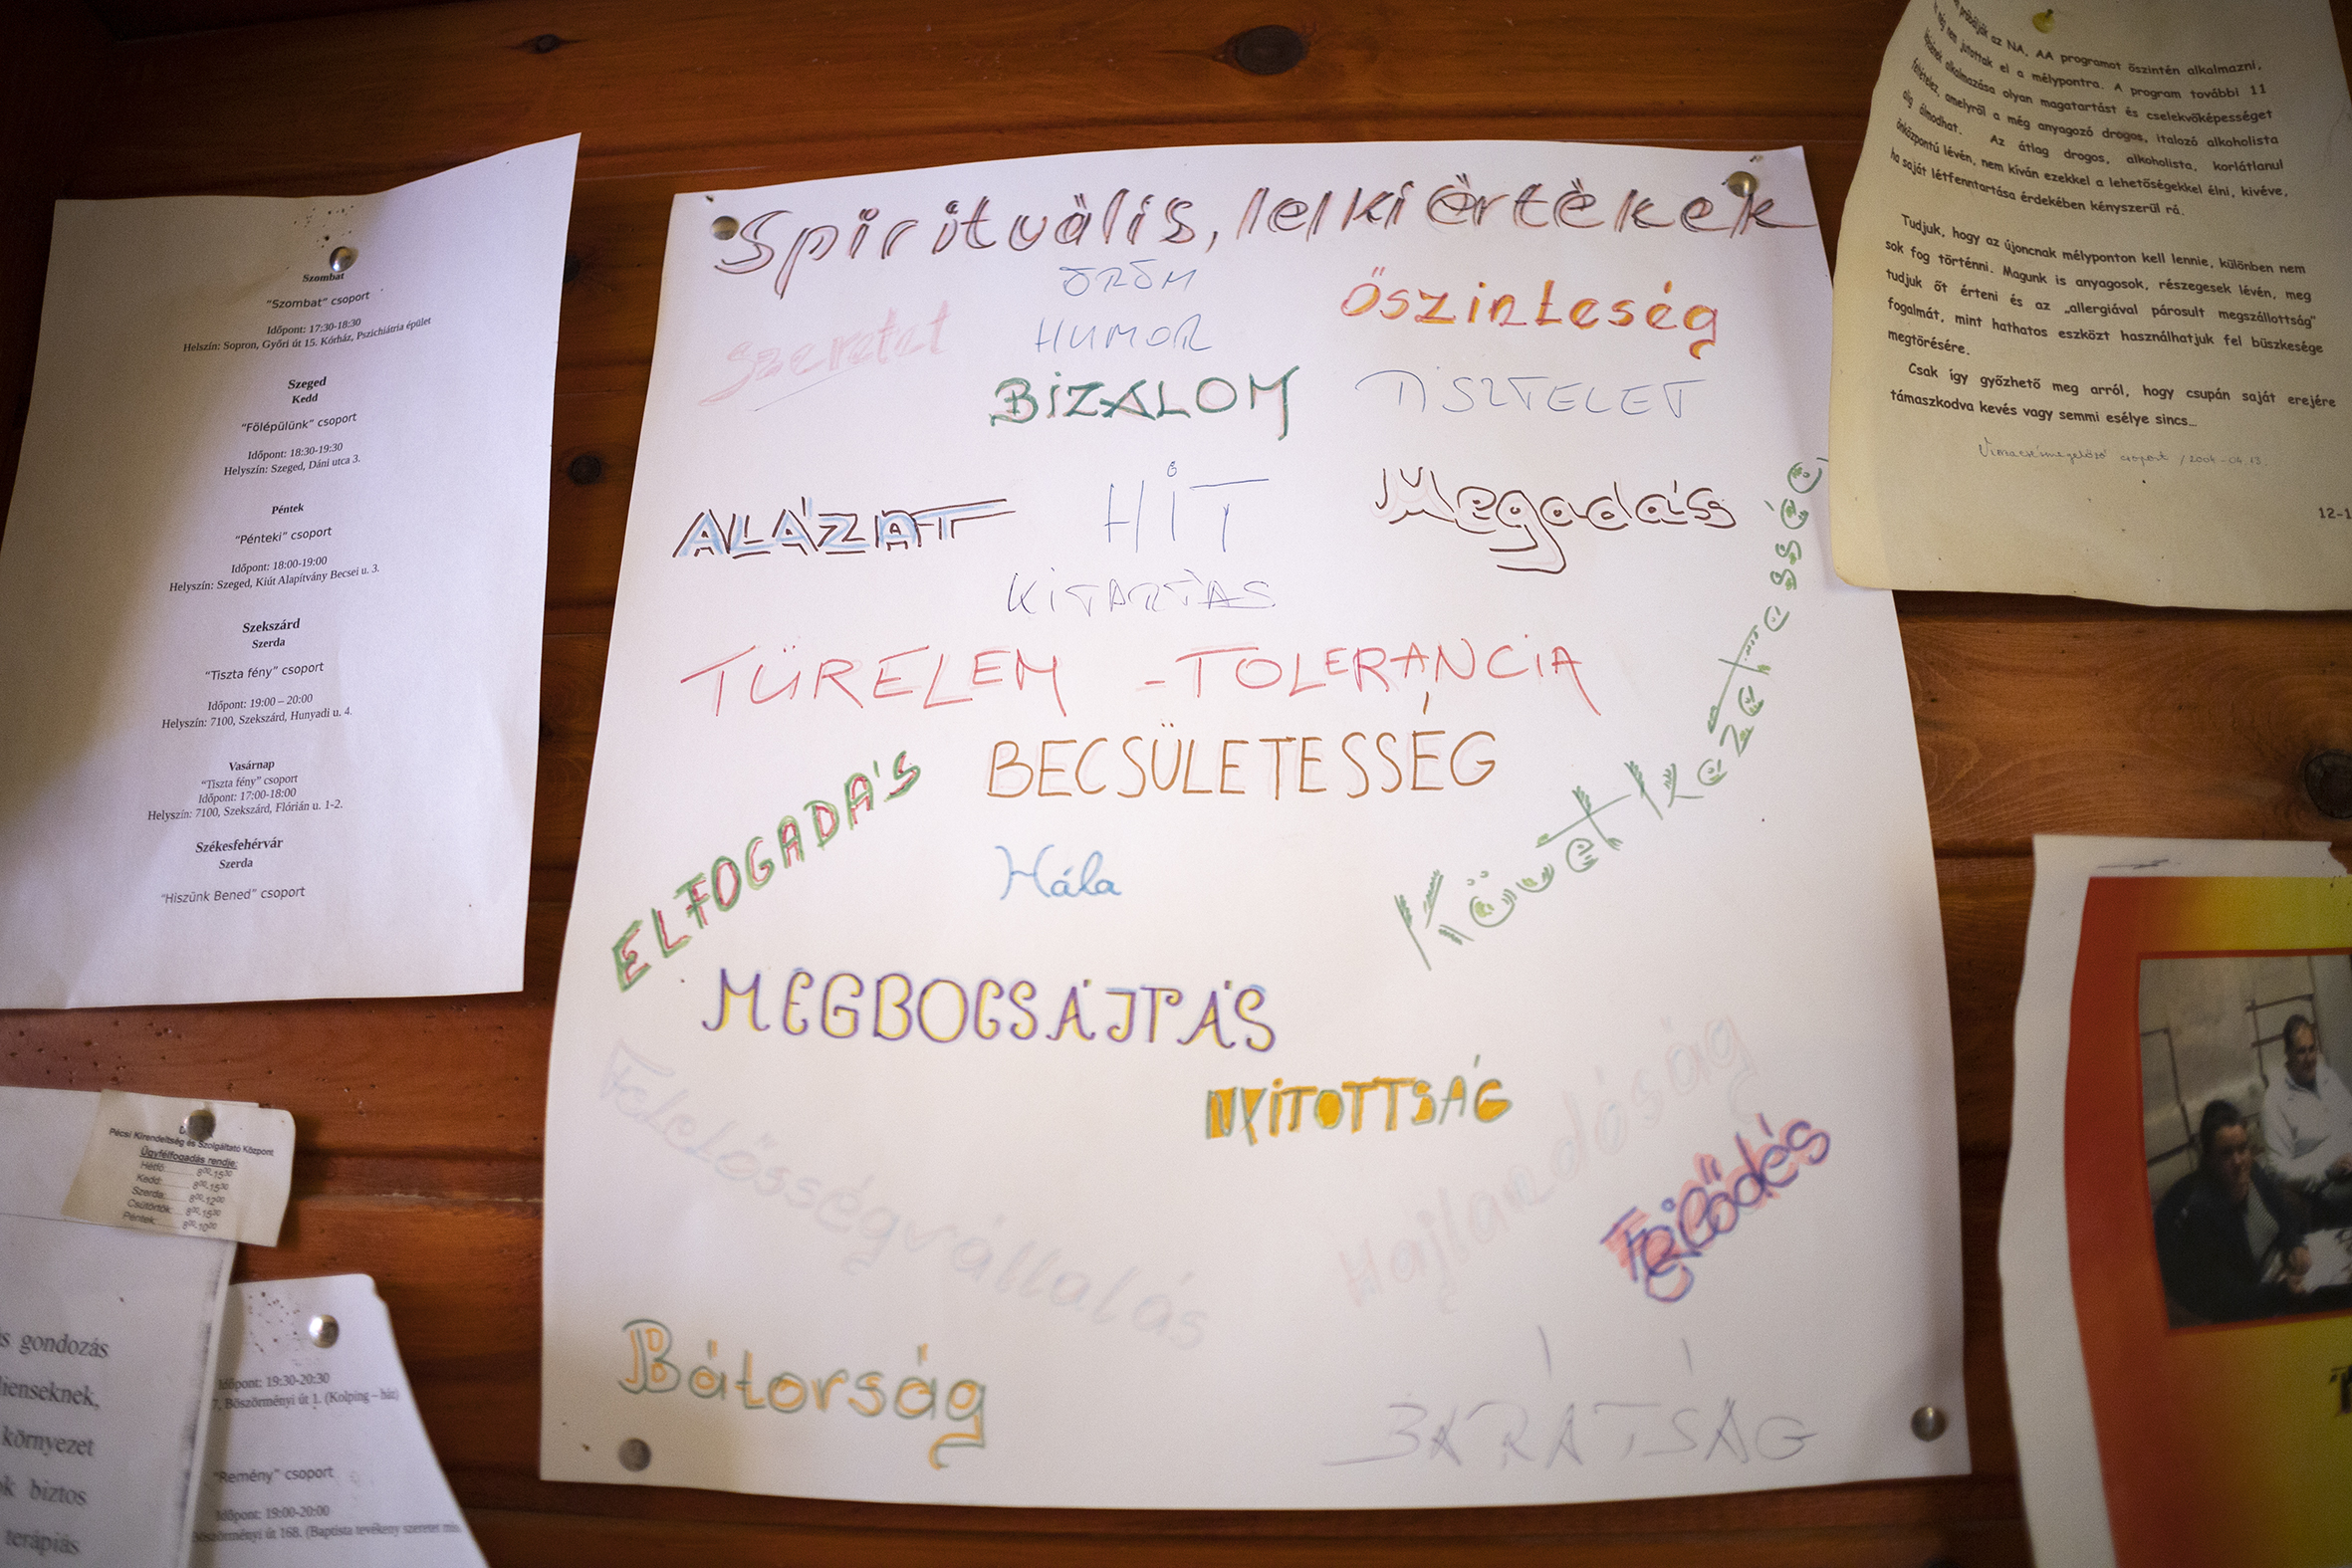 Szombat
"Szombat" csoport
Időpont: 17:30-18:30
Helszín: Sopron, Győri út 15. Kórház, Pszichiátria épület
Szeged
Kedd
"Fölépülünk" csoport
Időpont: 18:30-19:30
Helyszín: Szeged, Dáni utca 3.
Péntek
"Pénteki" csoport
Időpont: 18:00-19:00
Helyszín: Szeged, Kiút Alapítvány Becsei u. 3.
Szekszárd
Szerda
"Tiszta fény" csoport
Időpont: 19:00 – 20:00
Helyszín: 7100, Szekszárd, Hunyadi u. 4.
Vasárnap
"Tiszta fény" csoport
Időpont: 17:00-18:00
Helyszín: 7100, Szekszárd, Flórián u. 1-2.
Székesfehérvár
Szerda
"Hiszünk Bened" csoport
Pécsi Kirendeltség és Szolgáltató Központ
Ügyfélfogadás rendje:
Hétfő: 8⁰⁰-15³⁰
Kedd: 8⁰⁰-15³⁰
Szerda: 8⁰⁰-12⁰⁰
Csütörtök: 8⁰⁰-15³⁰
Péntek: 8⁰⁰-10⁰⁰
gondozás
környezet
biztos
terápiás
Időpont: 19:30-20:30
Böszörményi út 1. (Kolping – ház)
"Remény" csoport
Időpont: 19:00-20:00
Böszörményi út 168. (Baptista tevékeny szeretet
Spirituális, lelki értékek
ÖRÖM
Szeretet
HUMOR
Őszinteség
BIZALOM
TISZTELET
ALÁZAT
HIT
Megadás
KITARTÁS
TÜRELEM - TOLERANCIA
BECSÜLETESSÉG
ELFOGADÁS
Hála
Következetesség
MEGBOCSÁJTÁS
NYITOTTSÁG
Felelősségvállalás
Hajlandóság
Fejlődés
Bátorság
BARÁTSÁG
próbálják az NA, AA programot őszintén alkalmazni,
még nem jutottak el a mélypontra. A program további 11
alkalmazása olyan magatartást és cselekvőképességet
feltételez, amelyről a még anyagozó drogos, italozó alkoholista
álmodhat. Az átlag drogos, alkoholista, korlátlanul
önközpontú lévén, nem kíván ezekkel a lehetőségekkel élni, kivéve,
ha saját létfenntartása érdekében kényszerül rá.
Tudjuk, hogy az újoncnak mélyponton kell lennie, különben nem
sok fog történni. Magunk is anyagosok, részegesek lévén, meg
tudjuk őt érteni és az „allergiával párosult megszállottság"
fogalmát, mint hathatos eszközt használhatjuk fel büszkesége
megtörésére.
Csak így győzhető meg arról, hogy csupán saját erejére
támaszkodva kevés vagy semmi esélye sincs...
csoport
12-1